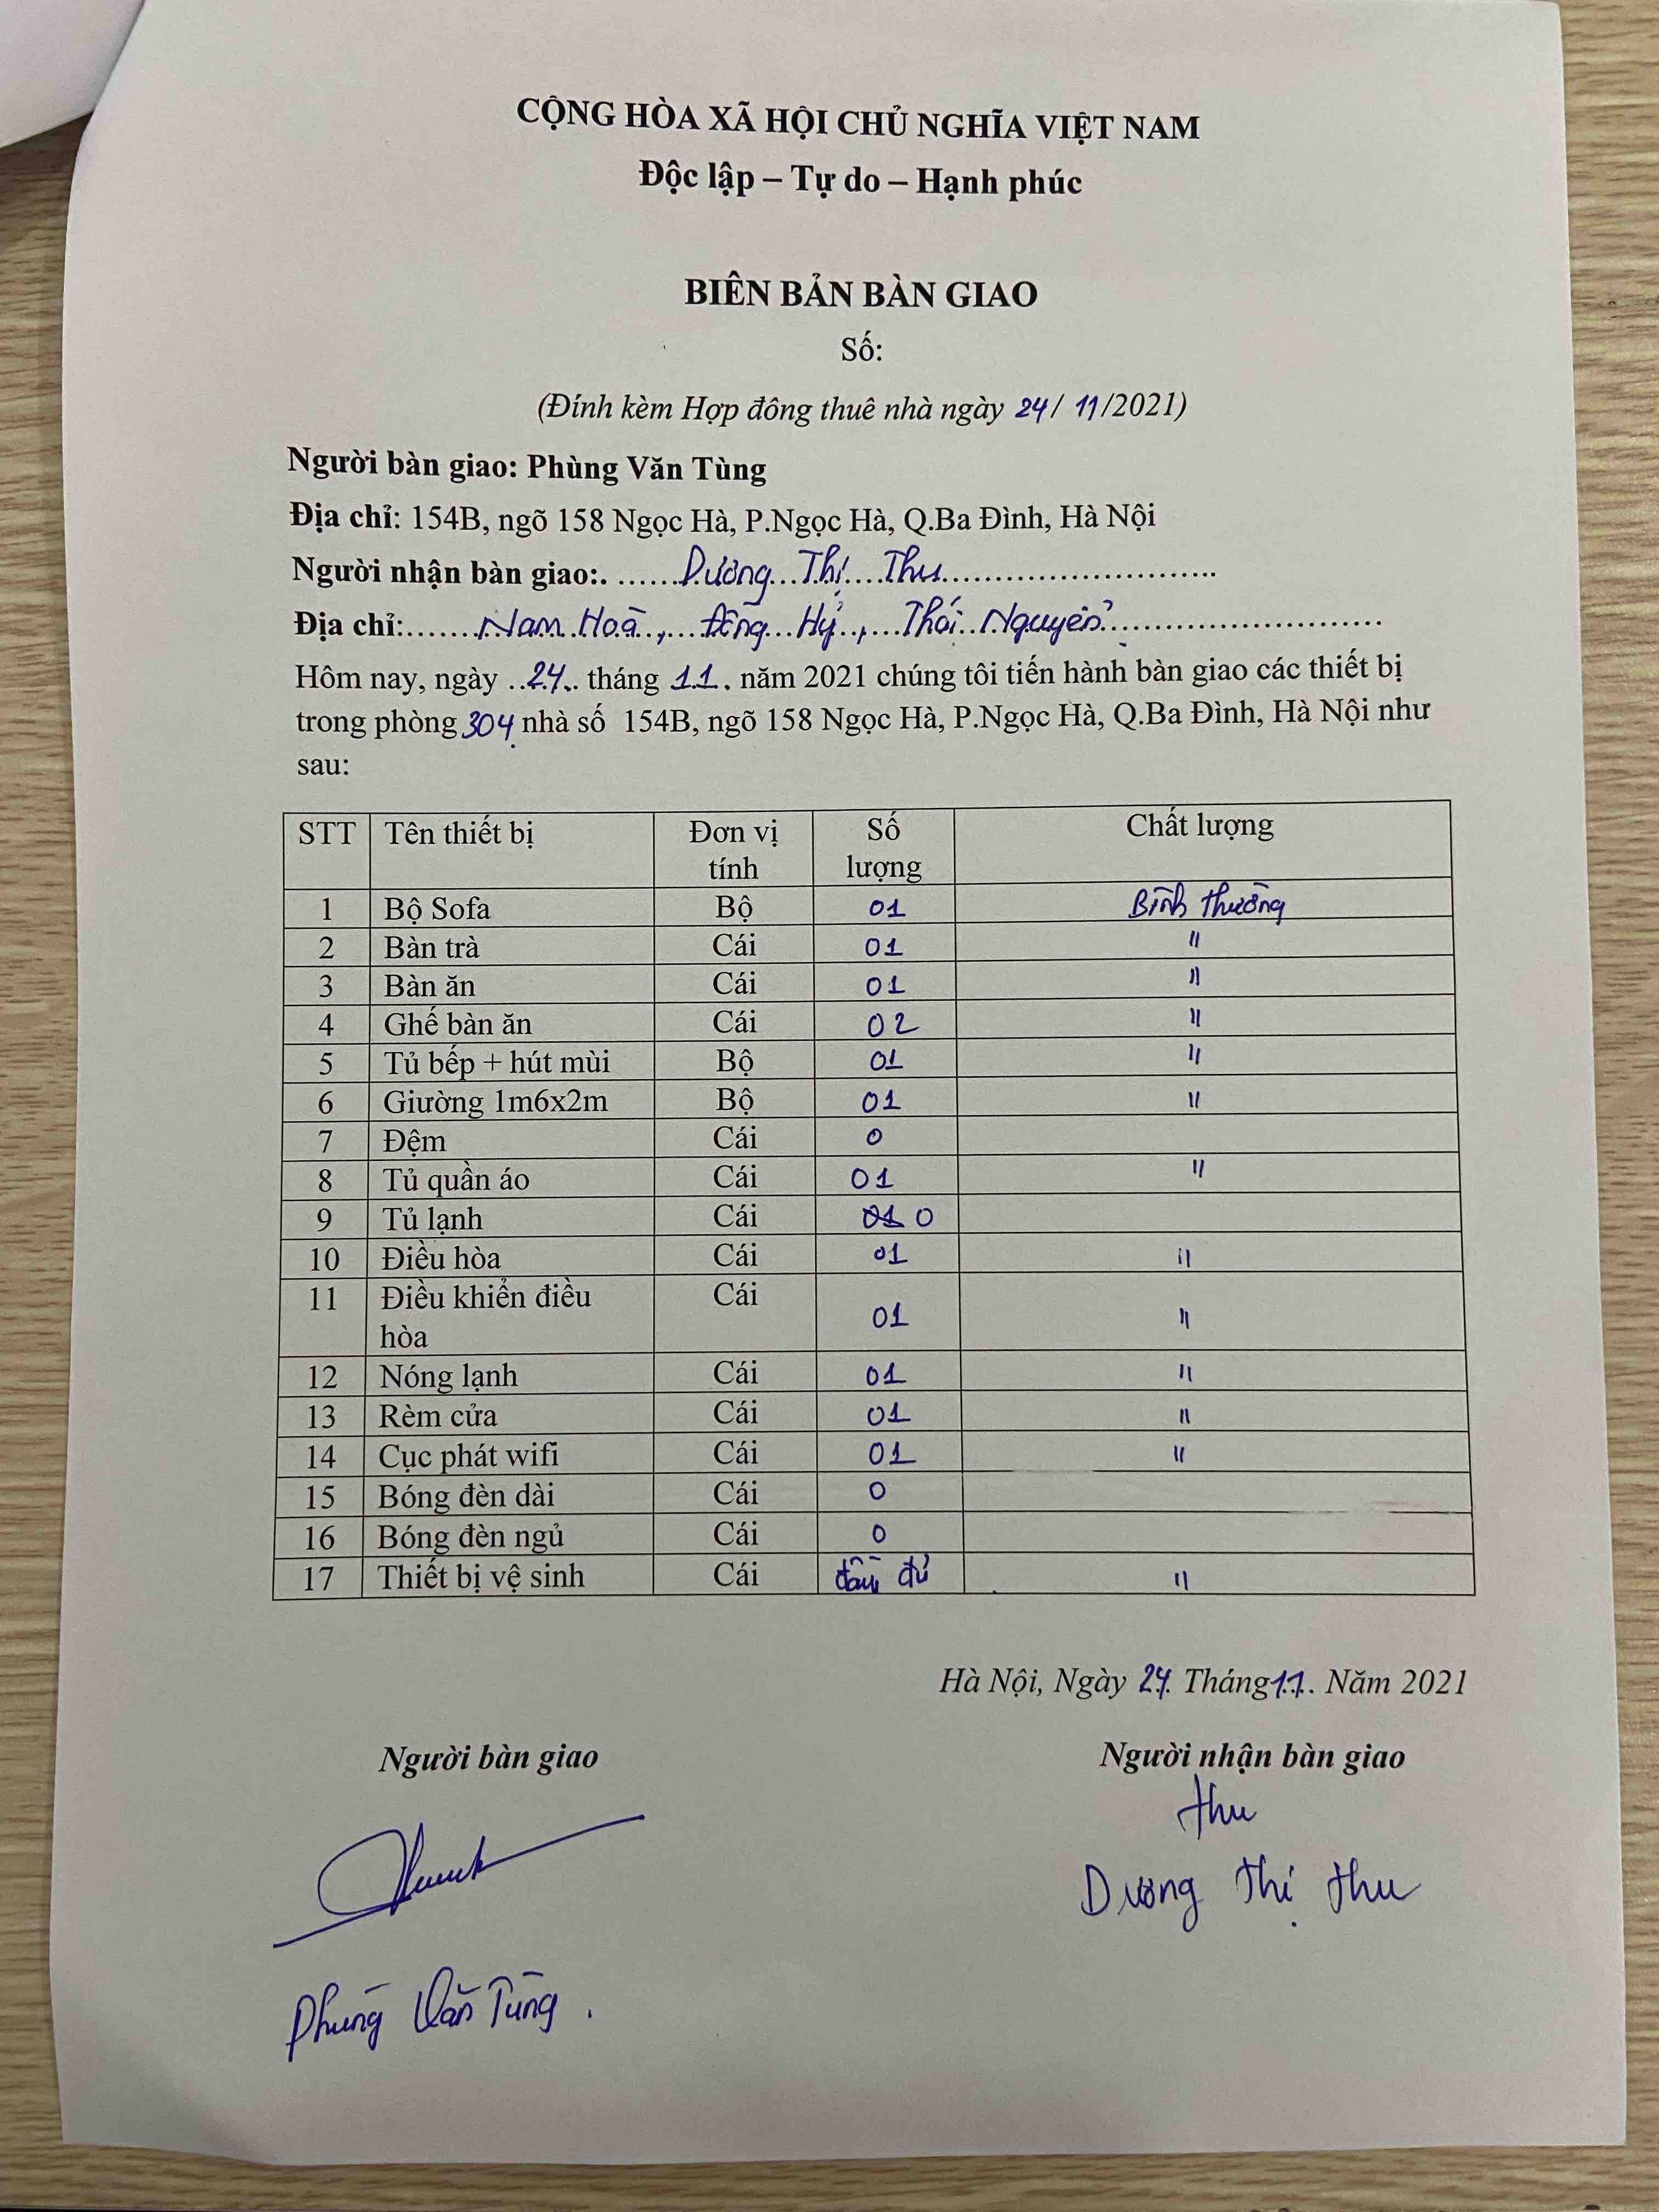 CỘNG HÒA XÃ HỘI CHỦ NGHĨA VIỆT NAM
Độc lập – Tự do – Hạnh phúc
BIÊN BẢN BÀN GIAO
Số:
(Đính kèm Hợp đông thuê nhà ngày 24/ 11/2021)
Người bàn giao: Phùng Văn Tùng
Địa chỉ: 154B, ngõ 158 Ngọc Hà, P.Ngọc Hà, Q.Ba Đình, Hà Nội
Người nhận bàn giao:. ......Dương...Thị....Thu............................
Địa chỉ:.......Nam Hoà, Đồng Hỷ, Thái Nguyên............................
Hôm nay, ngày ..24.. tháng 11. năm 2021 chúng tôi tiến hành bàn giao các thiết bị
trong phòng 304 nhà số 154B, ngõ 158 Ngọc Hà, P.Ngọc Hà, Q.Ba Đình, Hà Nội như
sau:
STT Tên thiết bị Đơn vị tính Số lượng Chất lượng
1 Bộ Sofa Bộ 01 Bình thường
2 Bàn trà Cái 01 "
3 Bàn ăn Cái 01 "
4 Ghế bàn ăn Cái 02 "
5 Tủ bếp + hút mùi Bộ 01 "
6 Giường 1m6x2m Bộ 01 "
7 Đệm Cái 0
8 Tủ quần áo Cái 01 "
9 Tủ lạnh Cái 01 0
10 Điều hòa Cái 01 "
11 Điều khiển điều hòa Cái 01 "
12 Nóng lạnh Cái 01 "
13 Rèm cửa Cái 01 "
14 Cục phát wifi Cái 01 "
15 Bóng đèn dài Cái 0
16 Bóng đèn ngủ Cái 0
17 Thiết bị vệ sinh Cái đầy đủ "
Hà Nội, Ngày 24. Tháng 11. Năm 2021
Người bàn giao Người nhận bàn giao
Thu
Dương Thị Thu
Phùng Văn Tùng.